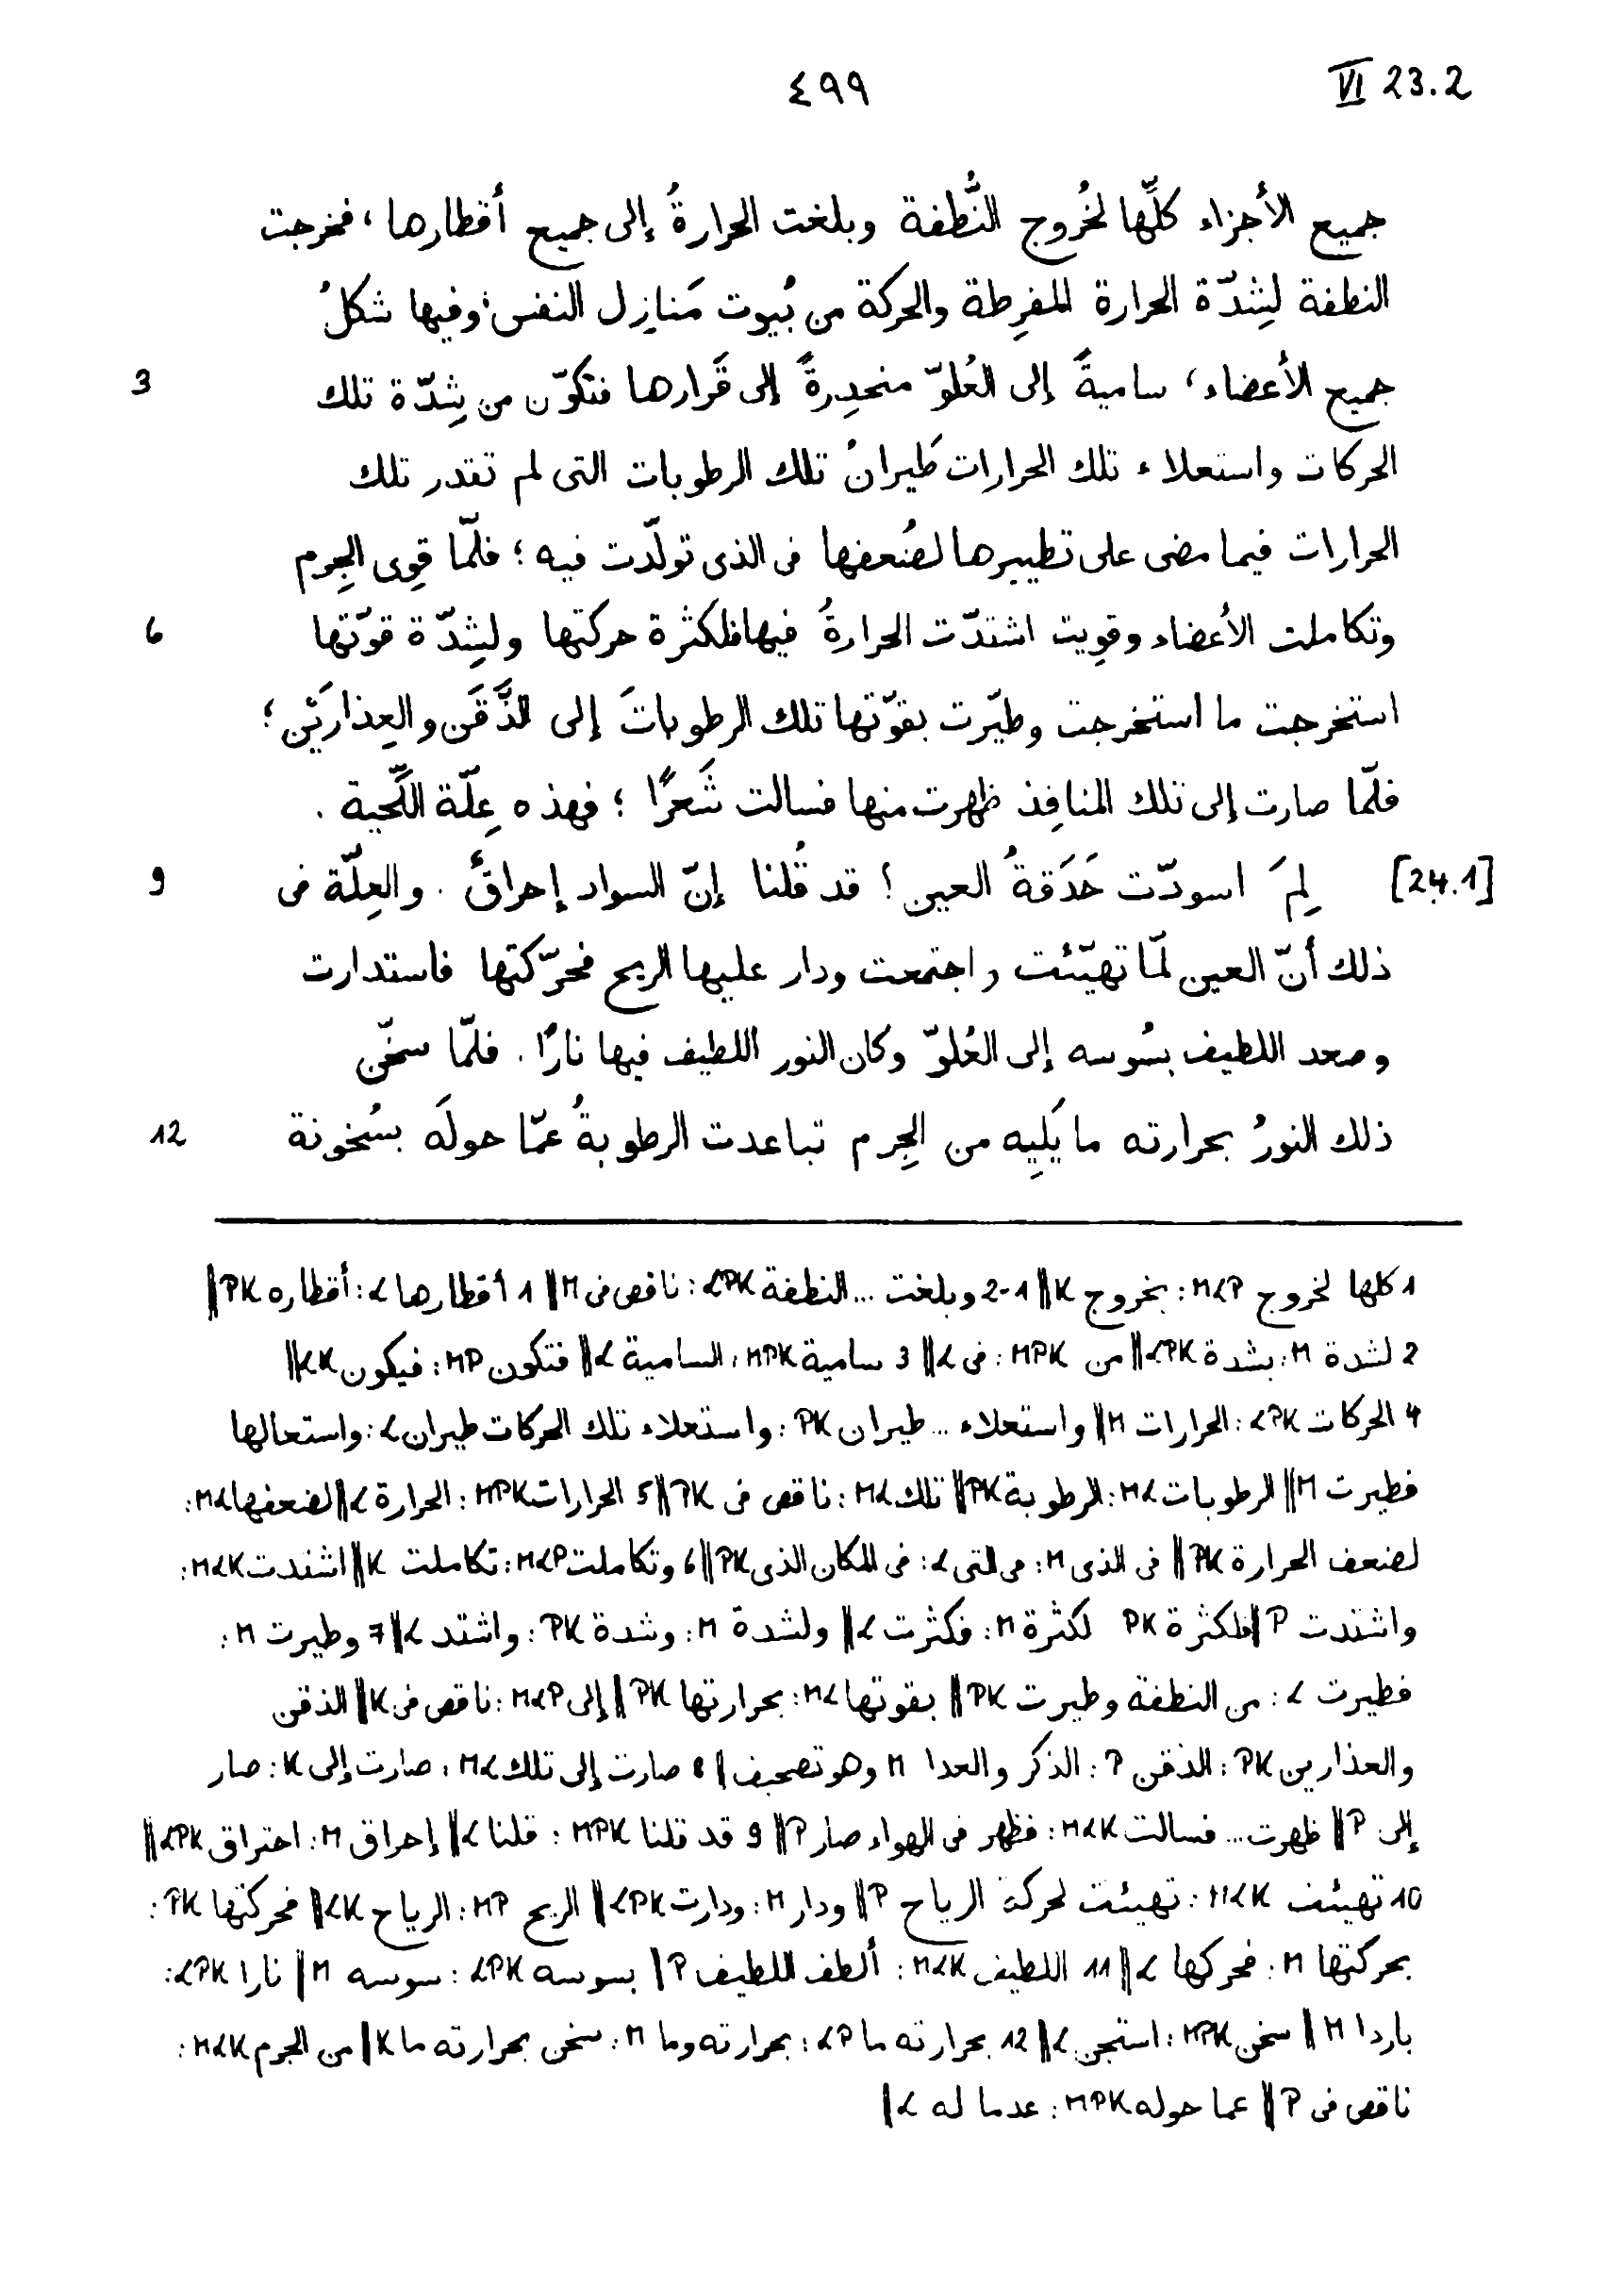 ٤٩٩ VI 23.2
جميع الأجزاء كلِّها لخُروج النُّطفة وبلغت الحرارةُ إلى جميع أقطارها، فخرجت
النطفة لِشدّة الحرارة المفرِطة والحركة من بُيوت مَنازِل النفس، وفيها شكلُ
3 جميع الأعضاء، ساميةً إلى العُلوّ منحدِرةً إلى قَرارها فتكوّن من شِدّة تلك
الحركات واستعلاء تلك الحرارات طَيرانُ تلك الرطوبات التى لم تقدر تلك
الحرارات فيما مضى على تطييرها لضُعفها فى الذى تولّدت فيه؛ فلمّا قوِى الجِرم
6 وتكاملت الأعضاء وقوِيت اشتدّت الحرارةُ فيها فلكثرة حركتها ولشِدّة قوّتها
استخرجت ما استخرجت وطيّرت بقوّتها تلك الرطوباتَ إلى الذَّقَن والعِذارَيْن؛
فلمّا صارت إلى تلك المنافِذ ظهرت منها فسالت شَعرًا؛ فهذه عِلّة اللِّحية.
9 [24.1] لِمَ اسودّت حَدَقةُ العين؟ قد قُلنا إنّ السواد إحراقٌ. والعِلّة فى
ذلك أنّ العين لمّا تهيّئت واجتمعت ودار عليها الريح فحرّكتها فاستدارت
وصعد اللطيف بسُوسه إلى العُلوّ وكان النور اللطيف فيها نارًا. فلمّا سخّن
12 ذلك النورُ بحرارته ما يَلِيه من الجِرم تباعدت الرطوبةُ عمّا حولَه بسُخونة
1 كلها لخروج MLP: بخروج K‖ 1-2 وبلغت ... النطفة LPK: ناقص فى M‖ 1 أقطارها L: أقطاره PK‖
2 لشدة M: بشدة LPK‖ من MPK: فى L‖ 3 سامية MPK: السامية L‖ فتكون MP: فيكون LK‖
4 الحركات LPK: الحرارات M‖ واستعلاء ... طيران PK: واستعلاء تلك الحركات طيران L: واستعالها
فطيرت M‖ الرطوبات ML: الرطوبة PK‖ تلك ML: ناقص فى PK‖ 5 الحرارات MPK: الحرارة L‖ لضعفها ML:
لضعف الحرارة PK‖ فى الذى M: فى التى L: فى المكان الذى PK‖ 6 وتكاملت MLP: تكاملت K‖ اشتدت MLK:
واشتدت P‖ فلكثرة PK لكثرة M: فكثرت L‖ ولشدة M: وشدة PK: واشتد L‖ 7 وطيرت M:
فطيرت L: من النطفة وطيرت PK‖ بقوتها ML: بحرارتها PK‖ إلى MLP: ناقص فى K‖ الذقن
والعذارين PK: الذقن P: الذكر والعدا M وهو تصحيف‖ 8 صارت إلى تلك ML: صارت إلى K: صار
إلى P‖ ظهرت ... فسالت MLK: فظهر فى الهواء صار P‖ 9 قد قلنا MPK: قلنا L‖ إحراق M: احتراق LPK‖
10 تهيئت MLK: تهيئت لحركة الرياح P‖ ودار M: ودارت LPK‖ الريح MP: الرياح LK‖ فحركتها PK:
بحركتها M: فحركها L‖ 11 اللطيف MLK: ألطف اللطيف P‖ بسوسه LPK: سوسه M‖ نارا LPK:
باردا M‖ سخن MPK: استجن L‖ 12 بحرارته ما LP: بحرارته وما M: سخن بحرارته ما K‖ من الجرم MLK:
ناقص فى P‖ عما حوله MPK: عدما له L‖